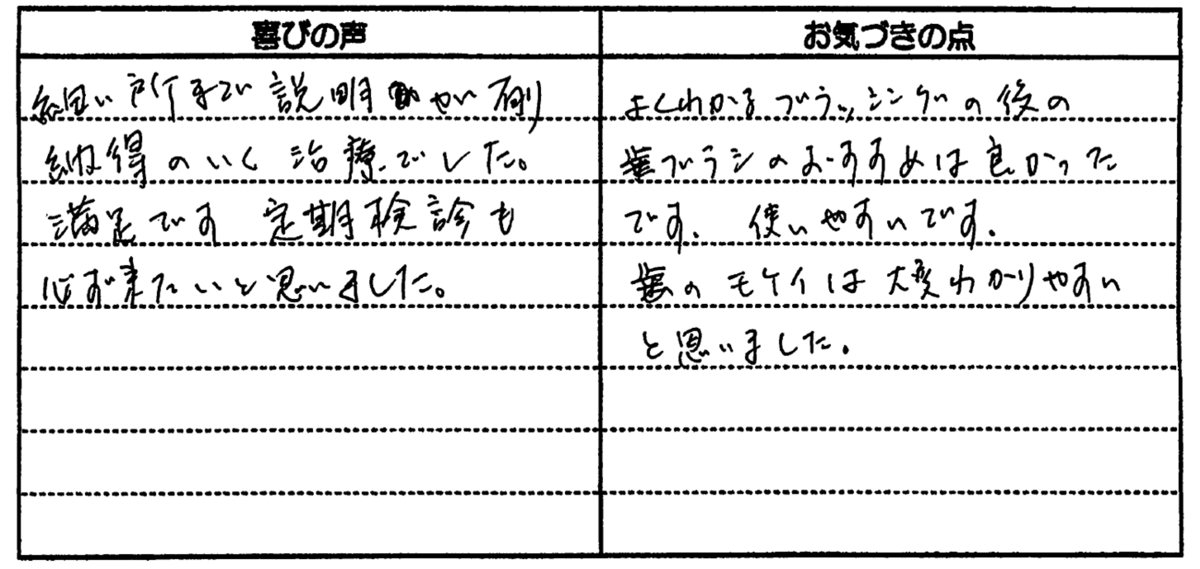 喜びの声
細い所まで説明
納得のいく治療でした。
満足です 定期検診も
必ず来たいと思いました。
お気づきの点
よくわかるブラッシングの後の
歯ブラシのおすすめは良かった
です. 使いやすいです.
歯のモケイは大変わかりやすい
と思いました.